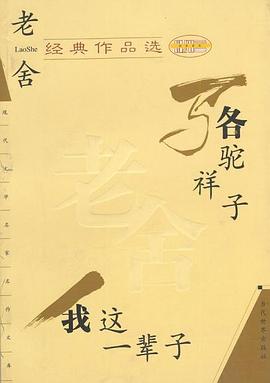 老舍
LaoShe
经典作品选
骆驼祥子
我这一辈子
现代文学名家名作文库
当代世界出版社
老舍